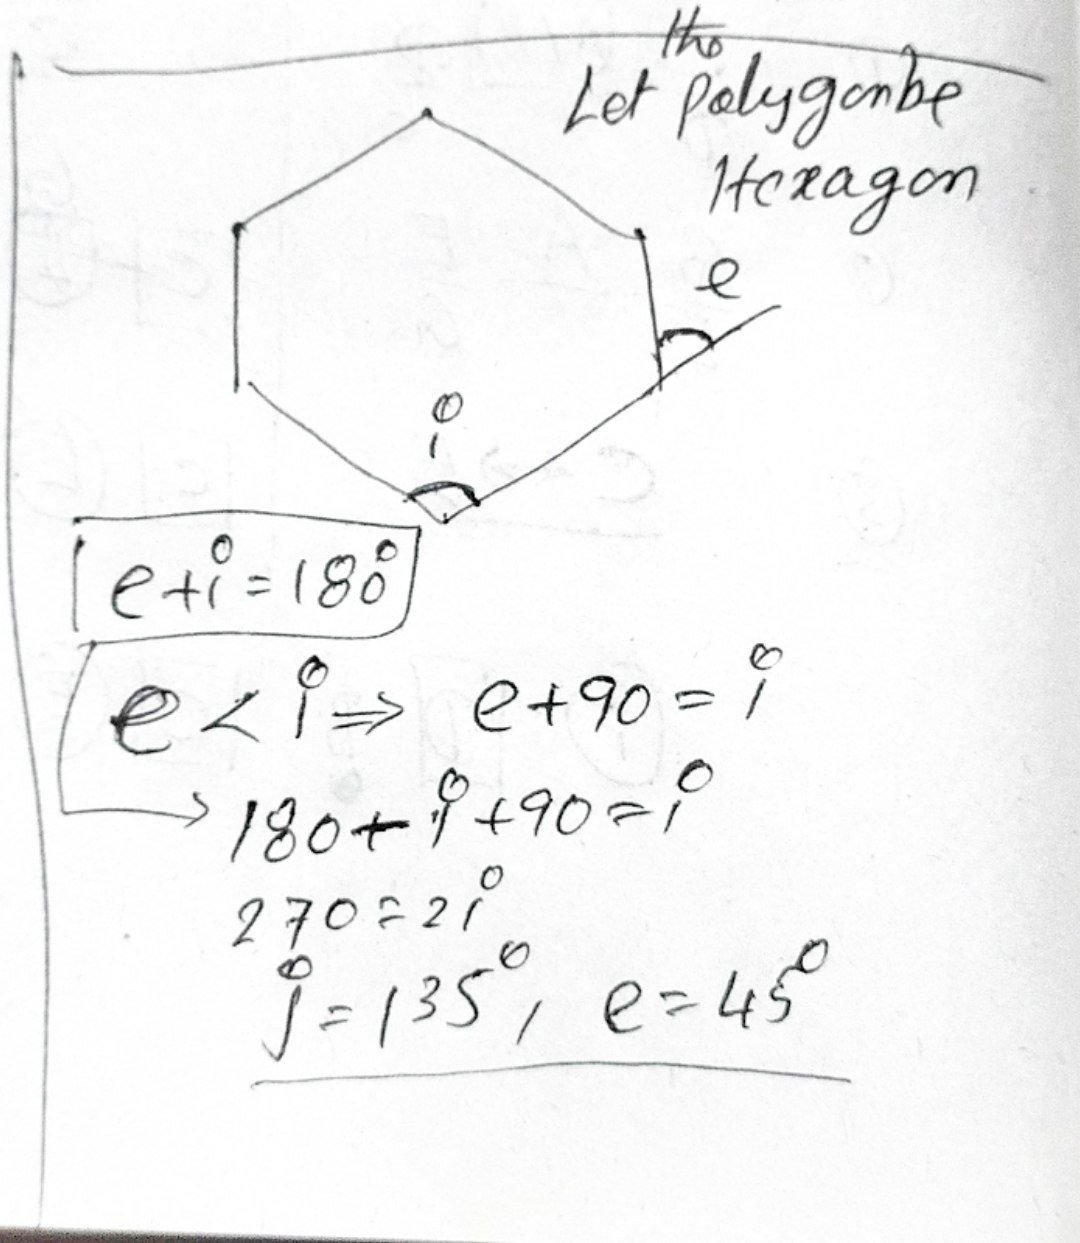 the
Let polygon be
Hexagon
e
i
e+i=180°
e < i ⇒ e+90 = i
180-i+90=i
270=2i
i=135°, e=45°